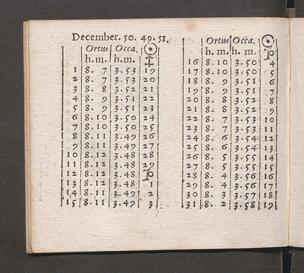 December. 50. 49. 51.
Ortus Occa. ☉
h. m. h. m. ♐
1 8. 7 3. 53 19
2 8. 7 3. 53 20
3 8. 8 3. 52 21
4 8. 9 3. 51 22
5 8. 9 3. 51 23
6 8. 10 3. 50 24
7 8. 10 3. 50 25
8 8. 11 3. 49 26
9 8. 11 3. 49 27
10 8. 12 3. 48 28
11 8. 12 3. 48 29
12 8. 12 3. 48 ♑
13 8. 12 3. 48 1
14 8. 11 3. 49 2
15 8. 11 3. 49 3
Ortus Occa. ☉
h. m. h. m. ♑
16 8. 10 3. 50 4
17 8. 10 3. 50 5
18 8. 9 3. 51
19 8. 8 3. 52
20 8. 8 3. 52
21 8. 8 3. 52 9
22 8. 7 3. 53
23 8. 7 3. 53
24 8. 6 3. 54 12
25 8. 6 3. 54 13
26 8. 5 3. 55 14
27 8. 5 3. 55 15
28 8. 4 3. 56 16
29 8. 4 3. 56 17
30 8. 3 3. 57 18
31 8. 2 3. 58 19